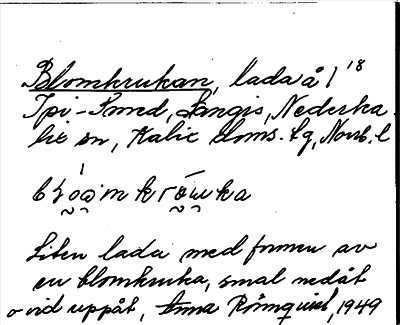 Blomkrukan, lada å 1/18
Ipi-Smed, Sangis, Nederka-
lix sn, Kalix doms. lg, Norrb. l
Liten lada med formen av
en blomkruka, smal nedåt
o vid uppåt, Anna Rönnquist, 1949